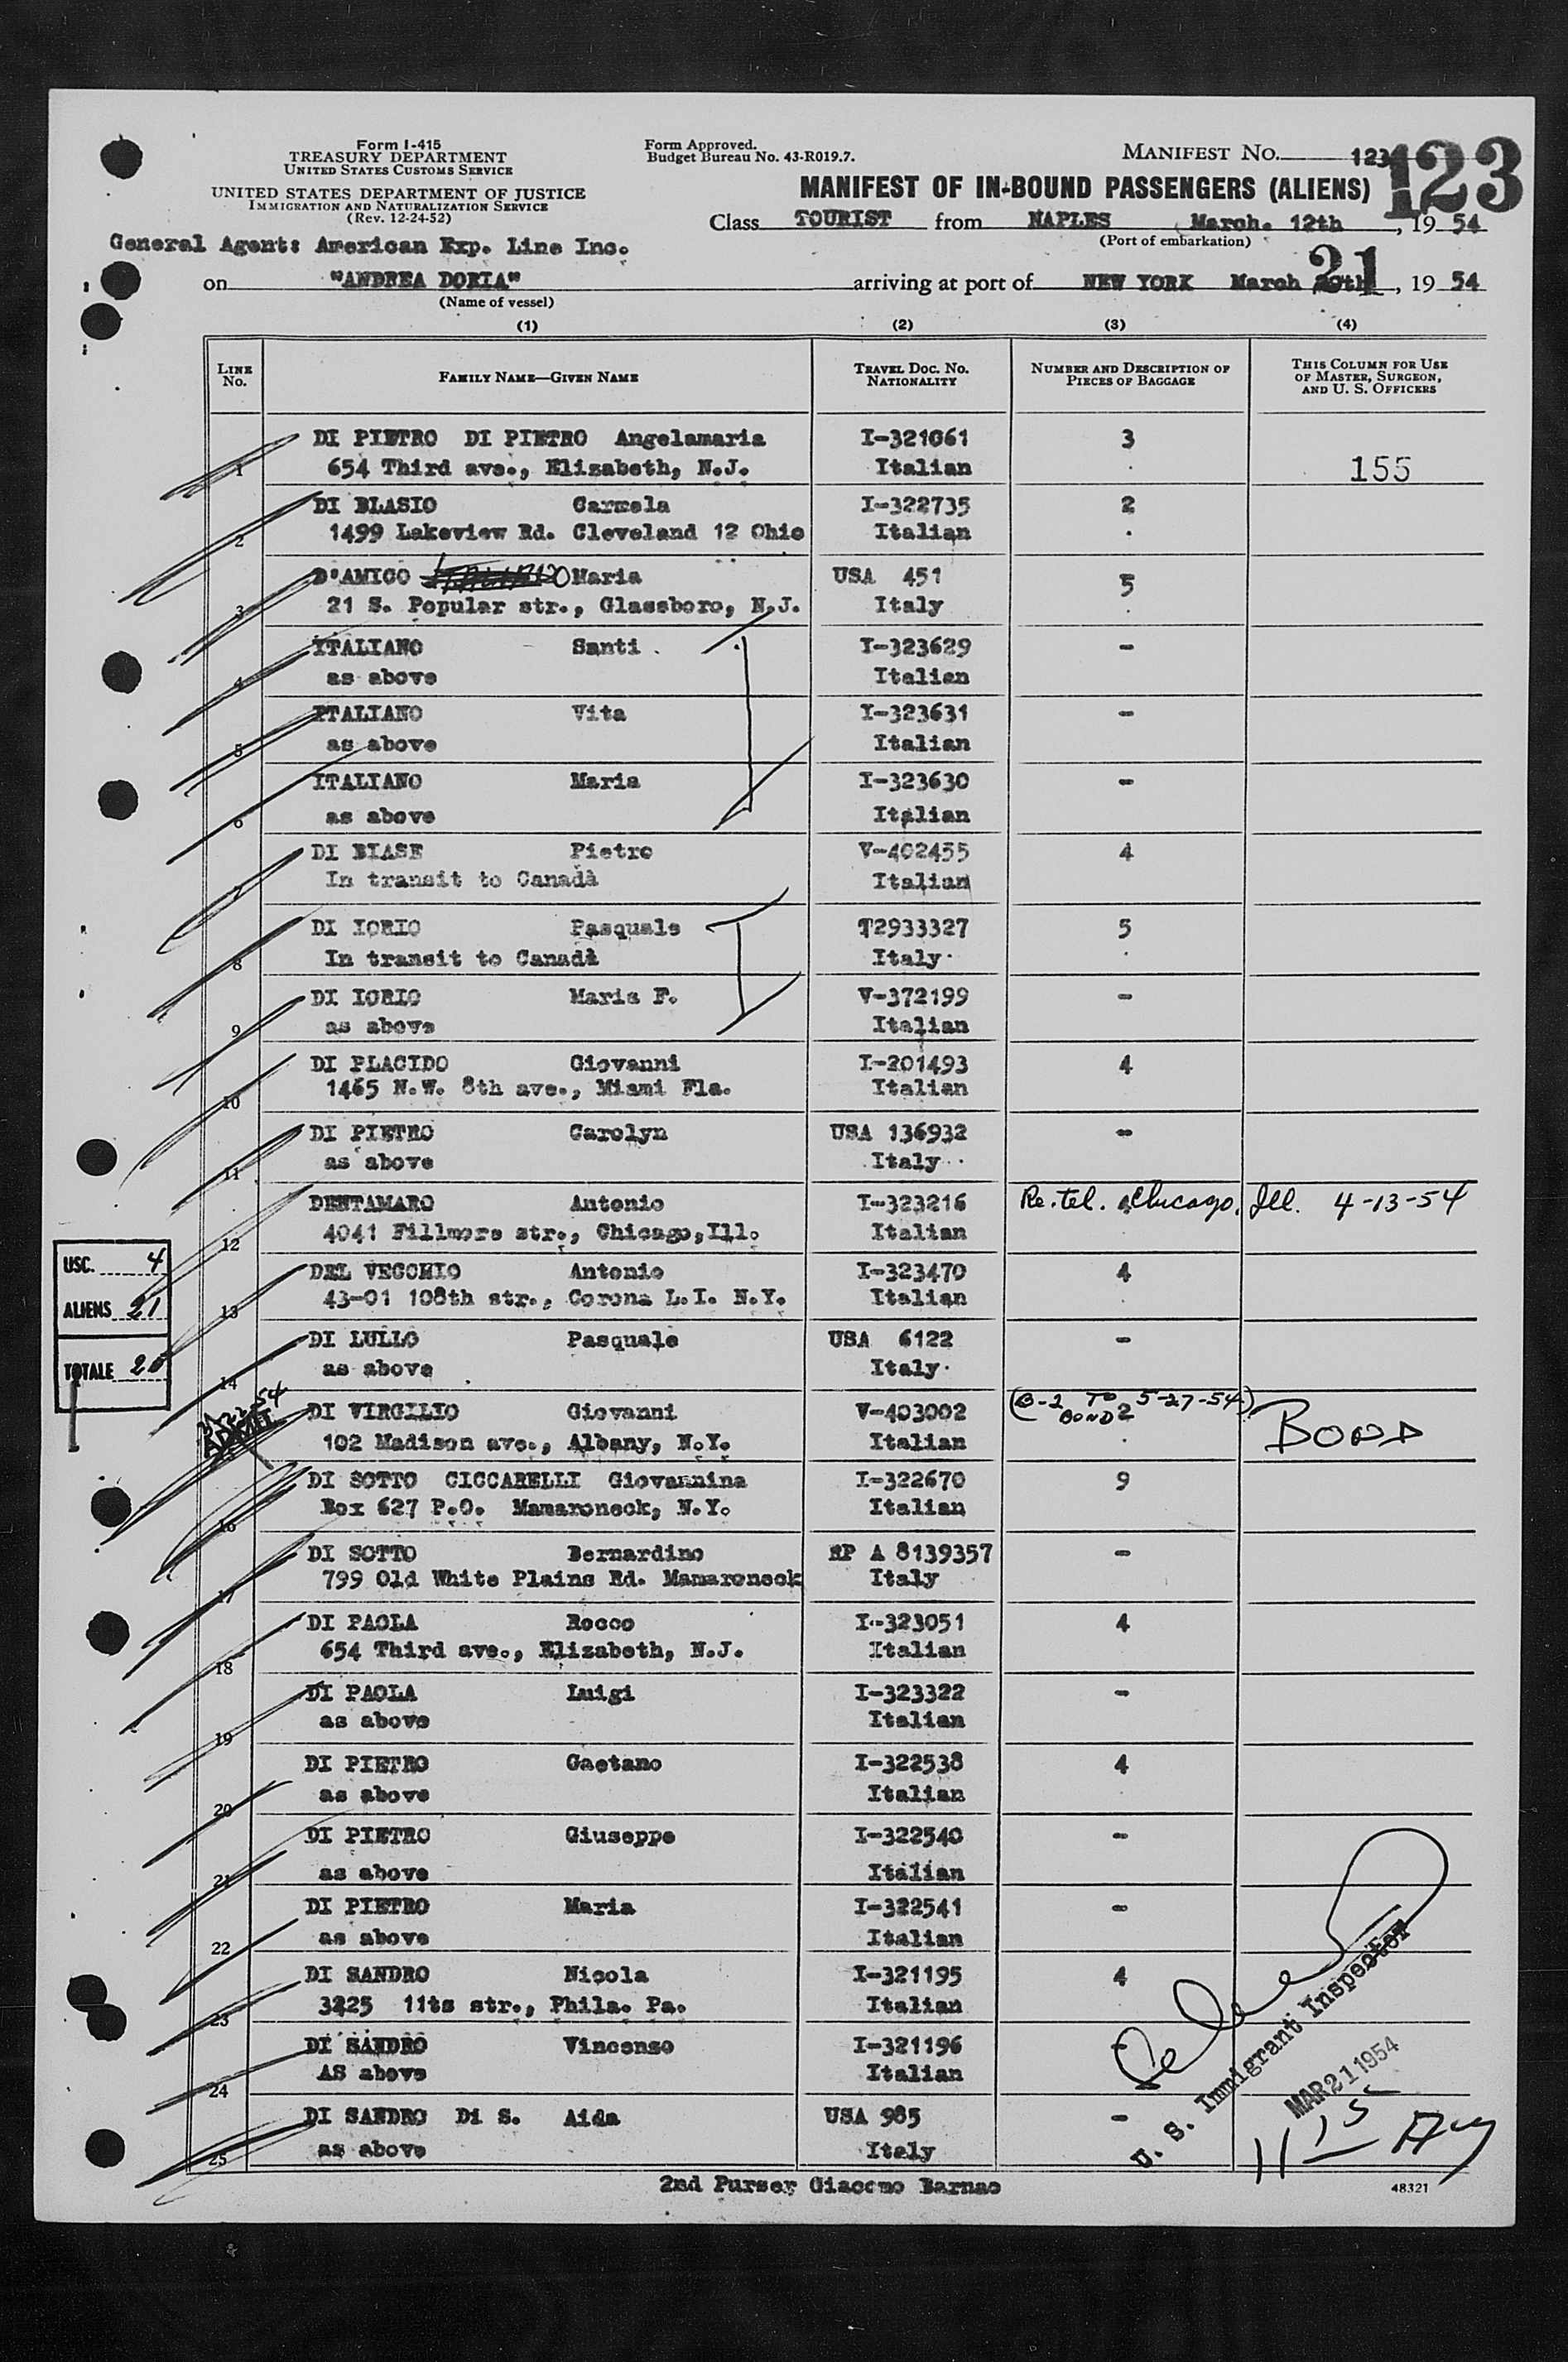 Form I-415
TREASURY DEPARTMENT
UNITED STATES CUSTOMS SERVICE
UNITED STATES DEPARTMENT OF JUSTICE
IMMIGRATION AND NATURALIZATION SERVICE
(Rev. 12-24-52)
Form Approved.
Budget Bureau No. 43-R019.7.
MANIFEST NO. 123
123
MANIFEST OF IN-BOUND PASSENGERS (ALIENS)
Class TOURIST from NAPLES March. 12th, 19 54
(Port of embarkation)
General Agent: American Exp. Line Inc.
on "ANDREA DORIA" arriving at port of NEW YORK March 21, 19 54
(Name of vessel)
(1) (2) (3) (4)
LINE No. FAMILY NAME—GIVEN NAME TRAVEL DOC. NO. NATIONALITY NUMBER AND DESCRIPTION OF PIECES OF BAGGAGE THIS COLUMN FOR USE OF MASTER, SURGEON, AND U. S. OFFICERS
DI PIETRO DI PIETRO Angelamaria I-321061 3
1 654 Third ave., Elizabeth, N.J. Italian 155
DI BLASIO Carmela I-322735 2
2 1499 Lakeview Rd. Cleveland 12 Ohio Italian
D'AMICO Maria USA 451 5
3 21 S. Popular str., Glassboro, N.J. Italy
ITALIANO Santi I-323629 -
4 as above Italian
ITALIANO Vita I-323631 -
5 as above Italian
ITALIANO Maria I-323630 -
6 as above Italian
DI BIASE Pietro V-402455 4
7 In transit to Canadà Italian
DI IORIO Pasquale T2933327 5
8 In transit to Canadà Italy
DI IORIO Maria F. V-372199 -
9 as above Italian
DI PLACIDO Giovanni I-201493 4
10 1465 N.W. 8th ave., Miami Fla. Italian
DI PIETRO Carolyn USA 136932 -
11 as above Italy
DENTAMARO Antonio I-323216 Re. tel. Chicago, Ill. 4-13-54
12 4041 Fillmore str., Chicago, Ill. Italian
DEL VECCHIO Antonio I-323470 4
13 43-01 108th str., Corona L.I. N.Y. Italian
DI LULLO Pasquale USA 6122 -
14 as above Italy
USC. 4
ALIENS 21
TOTALE
ADMIT
DI VIRGILIO Giovanni V-403002 2 (B-2 TO 5-27-54) BOND
102 Madison ave., Albany, N.Y. Italian BOND
DI SOTTO CICCARELLI Giovannina I-322670 9
16 Box 627 P.O. Mamaroneck, N.Y. Italian
DI SOTTO Bernardino RP A 8139357 -
17 799 Old White Plains Rd. Mamaroneck Italy
DI PAOLA Rocco I-323051 4
18 654 Third ave., Elizabeth, N.J. Italian
DI PAOLA Luigi I-323322 -
19 as above Italian
DI PIETRO Gaetano I-322538 4
20 as above Italian
DI PIETRO Giuseppe I-322540 -
21 as above Italian
DI PIETRO Maria I-322541 -
22 as above Italian
DI SANDRO Nicola I-321195 4
23 3225 11ts str., Phila. Pa. Italian
DI SANDRO Vincenzo I-321196 -
24 AS above Italian
DI SANDRO Di S. Aida USA 985 -
25 as above Italy
U. S. Immigrant Inspector
MAR 21 1954
2nd Purser Giacomo Barnao
48321